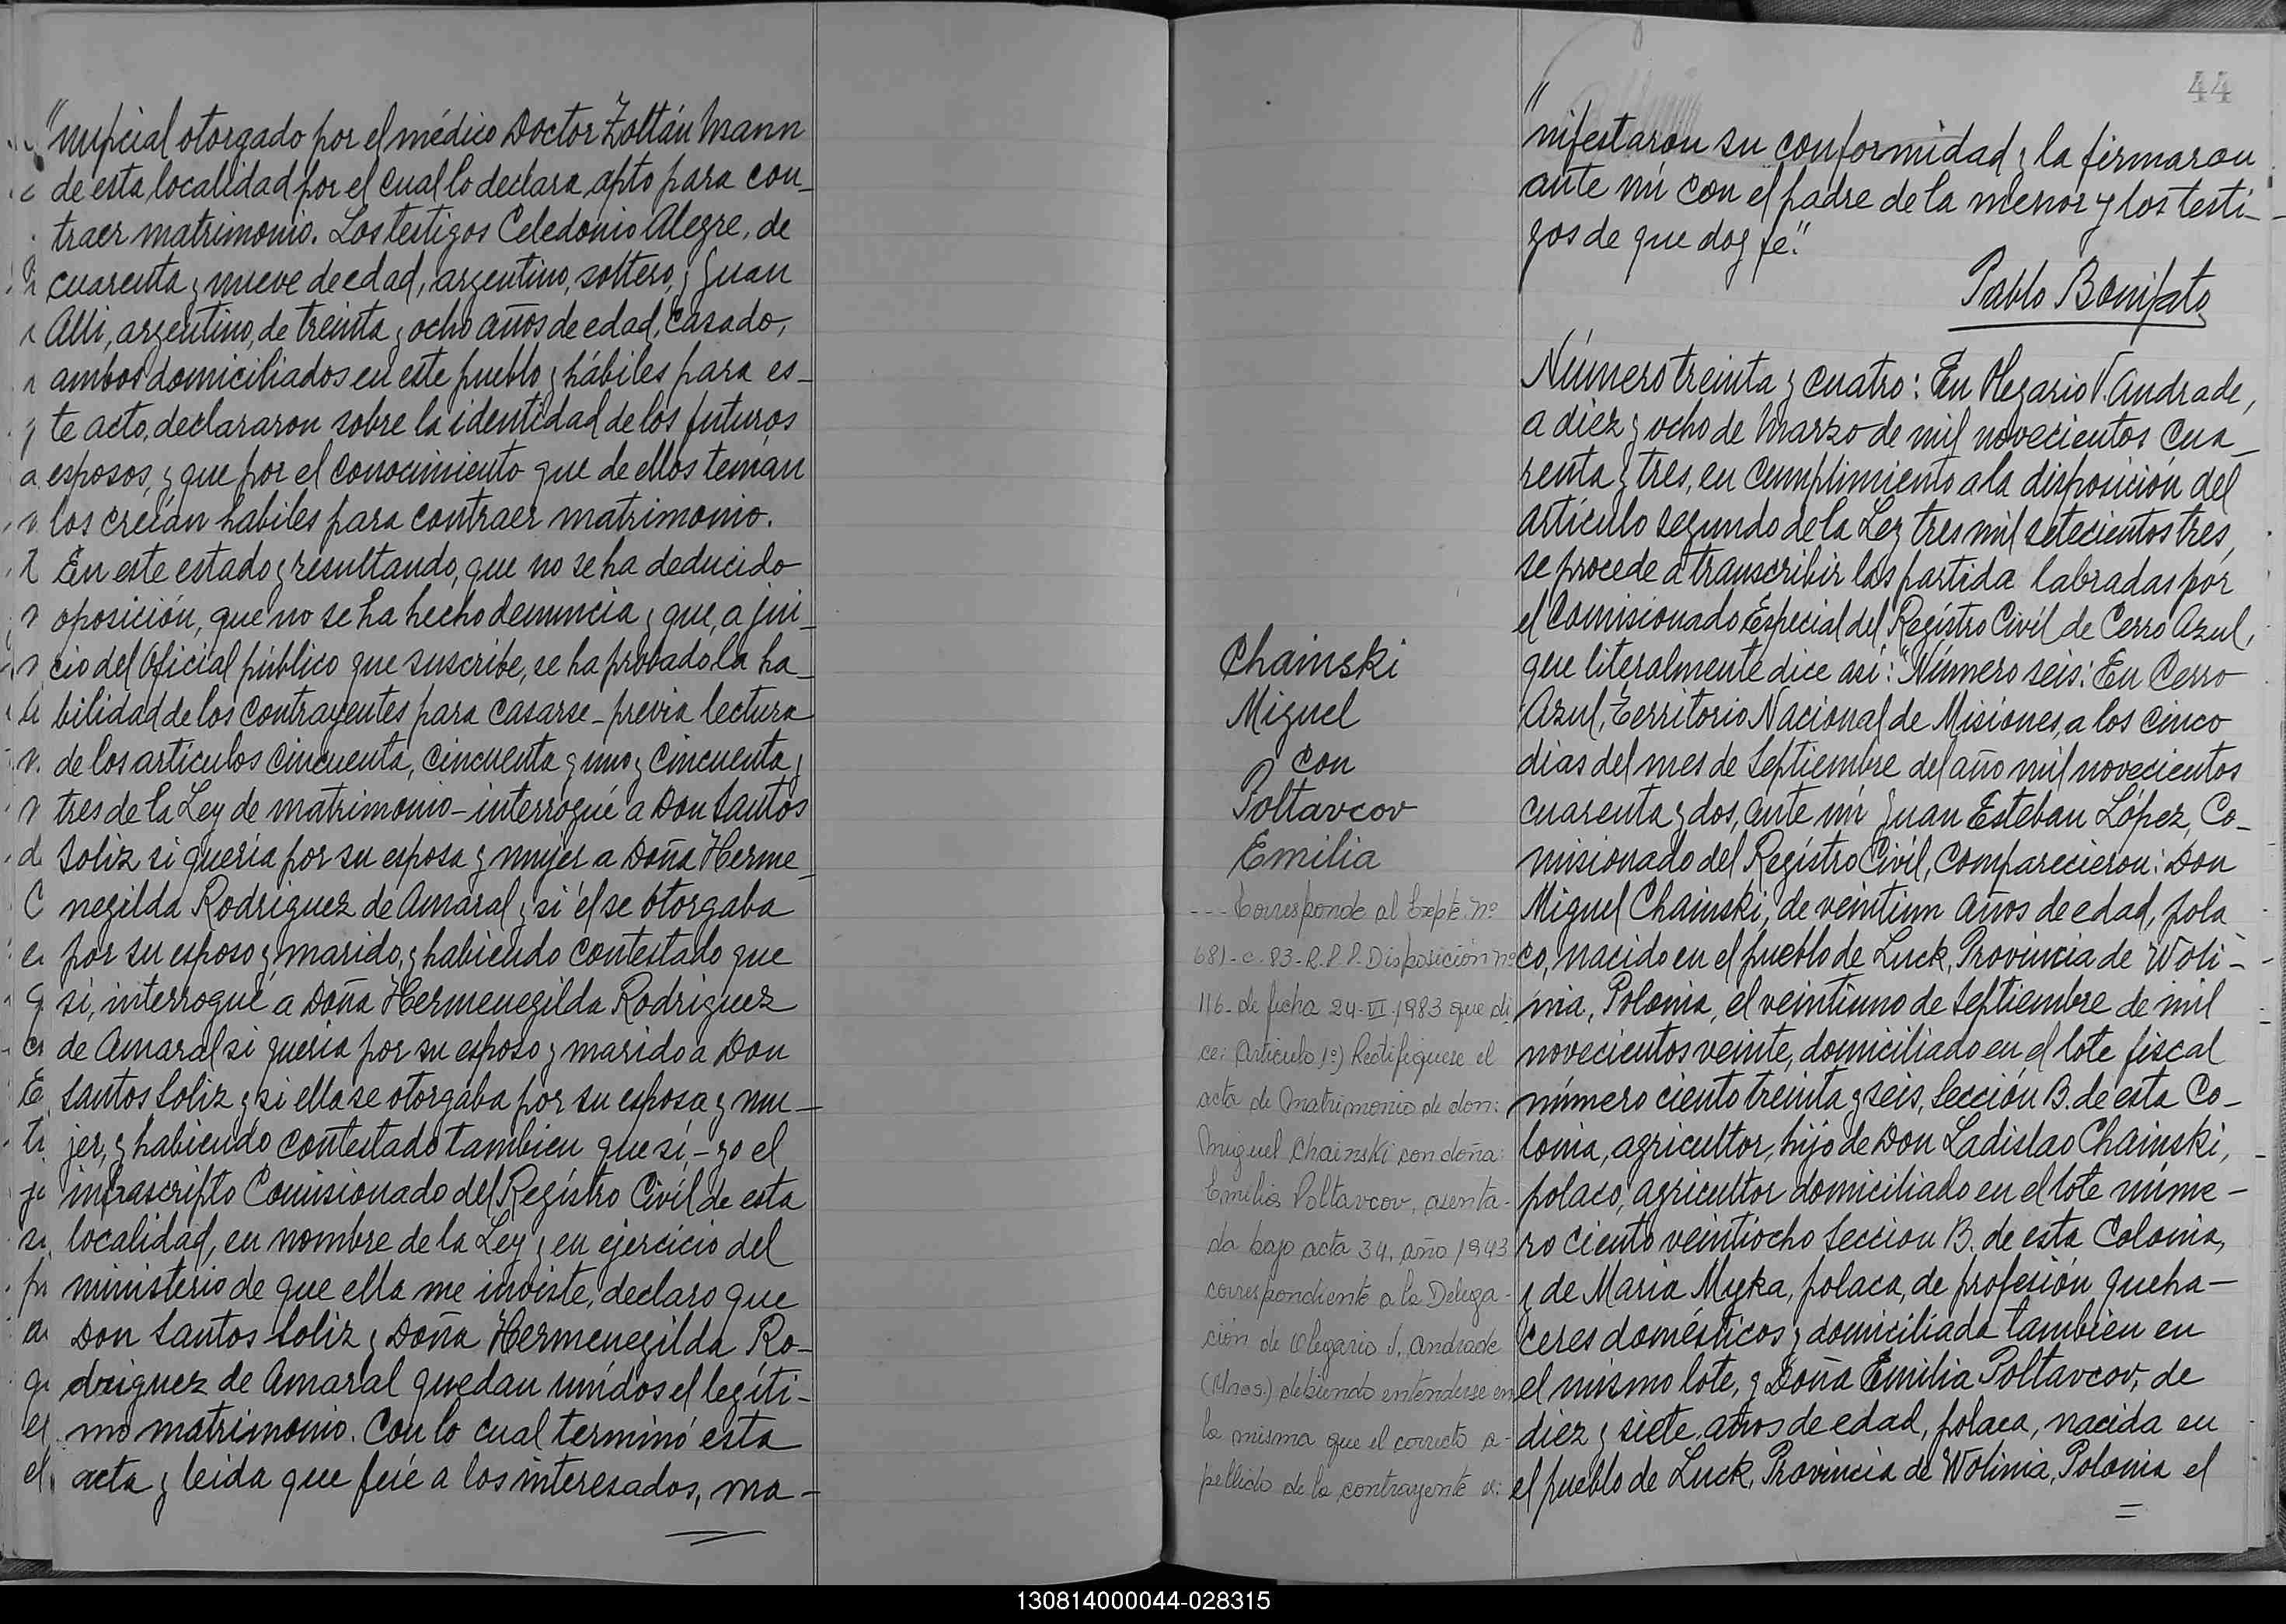 "nupcial otorgado por el médico Doctor Zoltán Mann
de esta localidad por el cual lo declara apto para con_
traer matrimonio. Los testigos Celedonio Alegre, de
cuarenta y nueve de edad, argentino, soltero, y Juan
Alli, argentino, de treinta y ocho años de edad, casado,
ambos domiciliados en este pueblo y hábiles para es_
te acto, declararon sobre la identidad de los futuros
esposos, y que por el conocimiento que de ellos tenían
los creían habiles para contraer matrimonio.
En este estado y resultando, que no se ha deducido
oposición, que no se ha hecho denuncia y que, a jui_
cio del Oficial público que suscribe, se ha probado la ha_
bilidad de los contrayentes para casarse - previa lectura
de los artículos cincuenta, cincuenta y uno y cincuenta y
tres de la Ley de matrimonio - interrogué a Don Santos
Soliz si quería por su esposa y mujer a Doña Herme_
negilda Rodriguez de Amaral y si él se otorgaba
por su esposo y marido, y habiendo contestado que
si, interrogué a Doña Hermenegilda Rodriguez
de Amaral si quería por su esposo y marido a Don
Santos Soliz y si ella se otorgaba por su esposa y mu-
jer, y habiendo contestado tambien que sí, - yo el
infrascripto Comisionado del Regístro Civíl de esta
localidad, en nombre de la Ley y en ejercicio del
ministerio de que ella me inviste, declaro que
Don Santos Soliz y Doña Hermenegilda Ro-
driguez de Amaral quedan unidos el legíti-
mo matrimonio. Con lo cual terminó esta
acta y leida que fué a los interesados, ma-
44
"nifestaron su conformidad y la firmaron
ante mí con el padre de la menor y los testi-
gos de que doy fe."
Pablo Bonifato
Chainski
Miguel
con
Poltavcov
Emilia
--- Corresponde al Expte. nº
681-c-83-R.P.P. Disposición nº
116- de fecha 24-VI-1983 que di
ce: Artículo 1º) Rectifiquese el
acta de Matrimonio de don:
Miguel Chainski con doña:
Emilia Poltavcov, asenta-
da bajo acta 34, año 1943
correspondiente a la Delega-
ción de Olegario V. Andrade
(Mnes.) debiendo entenderse en
la misma que el correcto a-
pellido de la contrayente es:
Número treinta y cuatro: En Olegario V. Andrade,
a diez y ocho de Marzo de mil novecientos cua_
renta y tres, en cumplimiento a la disposición del
artículo segundo de la Ley tres mil setecientos tres,
se procede a transcribir las partida labradas por
el Comisionado Especial del Regístro Civíl de Cerro Azul,
que literalmente dice así: "Número seis: En Cerro
Azul, Territorio Nacional de Misiones, a los cinco
dias del mes de Septiembre del año mil novecientos
cuarenta y dos, ante mí Juan Esteban López, Co-
misionado del Regístro Civíl, comparecieron: Don
Miguel Chainski, de veintiun años de edad, pola_
co, nacido en el pueblo de Luck, Provincia de Woli-
nia, Polonia, el veintiuno de Septiembre de mil
novecientos veinte, domiciliado en el lote fiscal
número ciento treinta y seis, Sección B. de esta Co-
lonia, agricultor, hijo de Don Ladislao Chainski,
polaco, agricultor domiciliado en el lote núme-
ro ciento veintiocho Seccion B. de esta Colonia,
y de María Myka, polaca, de profesión queha-
ceres domésticos y domiciliada tambien en
el mismo lote, y Doña Emilia Poltavcov, de
diez y siete años de edad, polaca, nacida en
el pueblo de Luck, Provincia de Wolinia, Polonia el
130814000044-028315